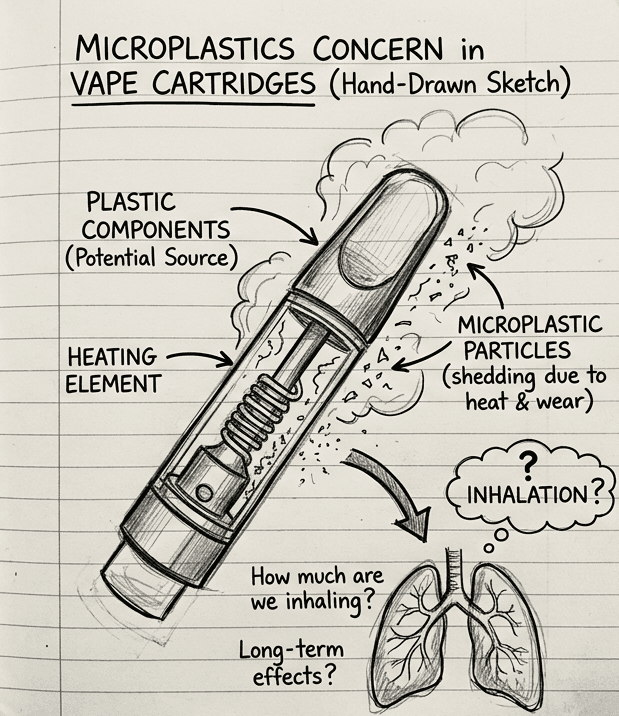 MICROPLASTICS CONCERN in
VAPE CARTRIDGES (Hand-Drawn Sketch)
PLASTIC
COMPONENTS
(Potential Source)
HEATING
ELEMENT
MICROPLASTIC
PARTICLES
(shedding due to
heat & wear)
?
INHALATION?
How much are
we inhaling?
Long-term
effects?